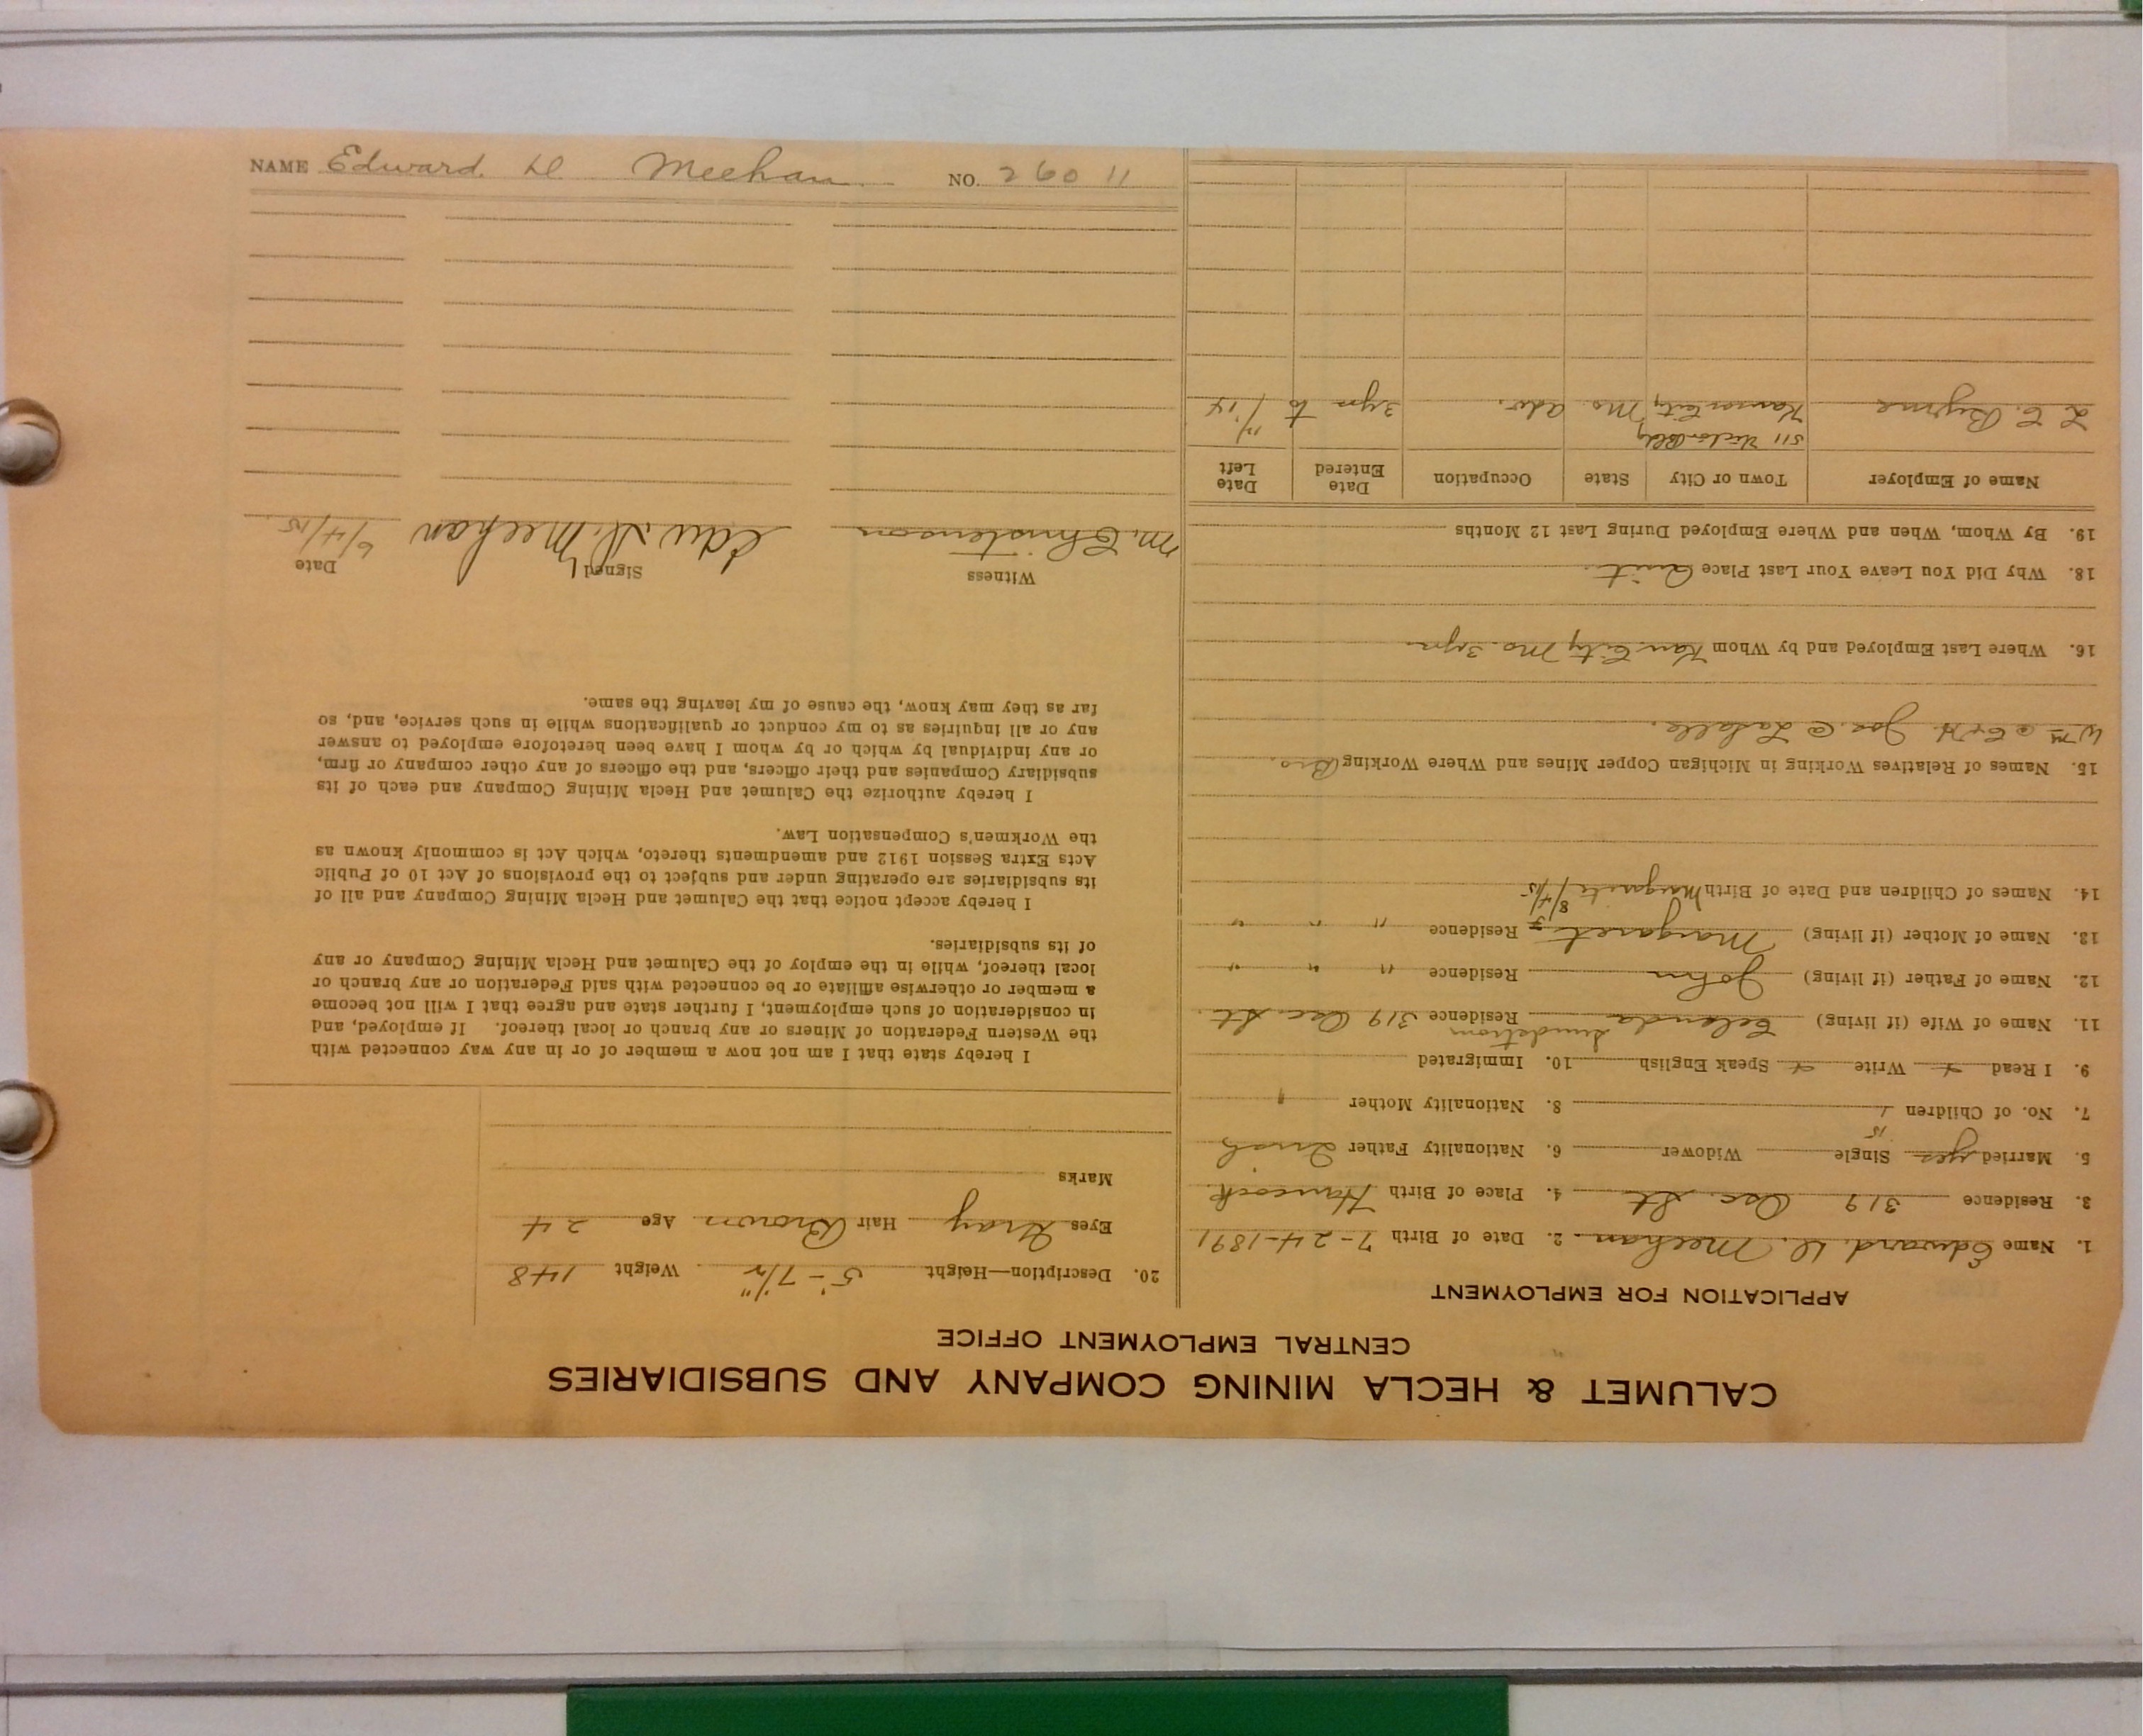 NAME Edward D Meehan NO. 26011
CALUMET & HECLA MINING COMPANY AND SUBSIDIARIES
CENTRAL EMPLOYMENT OFFICE
APPLICATION FOR EMPLOYMENT
1. Name Edward D. Meehan. 2. Date of Birth 7-24-1891
3. Residence 319 Osc. St. 4. Place of Birth Hancock
5. Married yes Single Widower 6. Nationality Father Irish
15
7. No. of Children 1 8. Nationality Mother "
9. I Read Write Speak English 10. Immigrated
11. Name of Wife (if living) Residence 319 Osc. St.
12. Name of Father (if living) John Residence " " "
13. Name of Mother (if living) Margaret Residence " " "
14. Names of Children and Date of Birth 8/4/15
15. Names of Relatives Working in Michigan Copper Mines and Where Working Bro.
Wm @ C&H. Jos. @ Lasalle.
16. Where Last Employed and by Whom Kan. City Mo. 3 yrs.
18. Why Did You Leave Your Last Place Quit.
19. By Whom, When and Where Employed During Last 12 Months
Name of Employer Town or City State Occupation Date Entered Date Left
511 Bldg
Byrne Kansas City Mo adv. 3 yrs to 11/14
20. Description—Height 5'-7 1/2" Weight 148
Eyes Gray Hair Brown Age 24
Marks
I hereby state that I am not now a member of or in any way connected with
the Western Federation of Miners or any branch or local thereof. If employed, and
in consideration of such employment, I further state and agree that I will not become
a member or otherwise affiliate or be connected with said Federation or any branch or
local thereof, while in the employ of the Calumet and Hecla Mining Company or any
of its subsidiaries.
I hereby accept notice that the Calumet and Hecla Mining Company and all of
its subsidiaries are operating under and subject to the provisions of Act 10 of Public
Acts Extra Session 1912 and amendments thereto, which Act is commonly known as
the Workmen's Compensation Law.
I hereby authorize the Calumet and Hecla Mining Company and each of its
subsidiary Companies and their officers, and the officers of any other company or firm,
or any individual by which or by whom I have been heretofore employed to answer
any or all inquiries as to my conduct or qualifications while in such service, and, so
far as they may know, the cause of my leaving the same.
Witness Signed Date
M. Christenson Edw D. Meehan 6/4/15